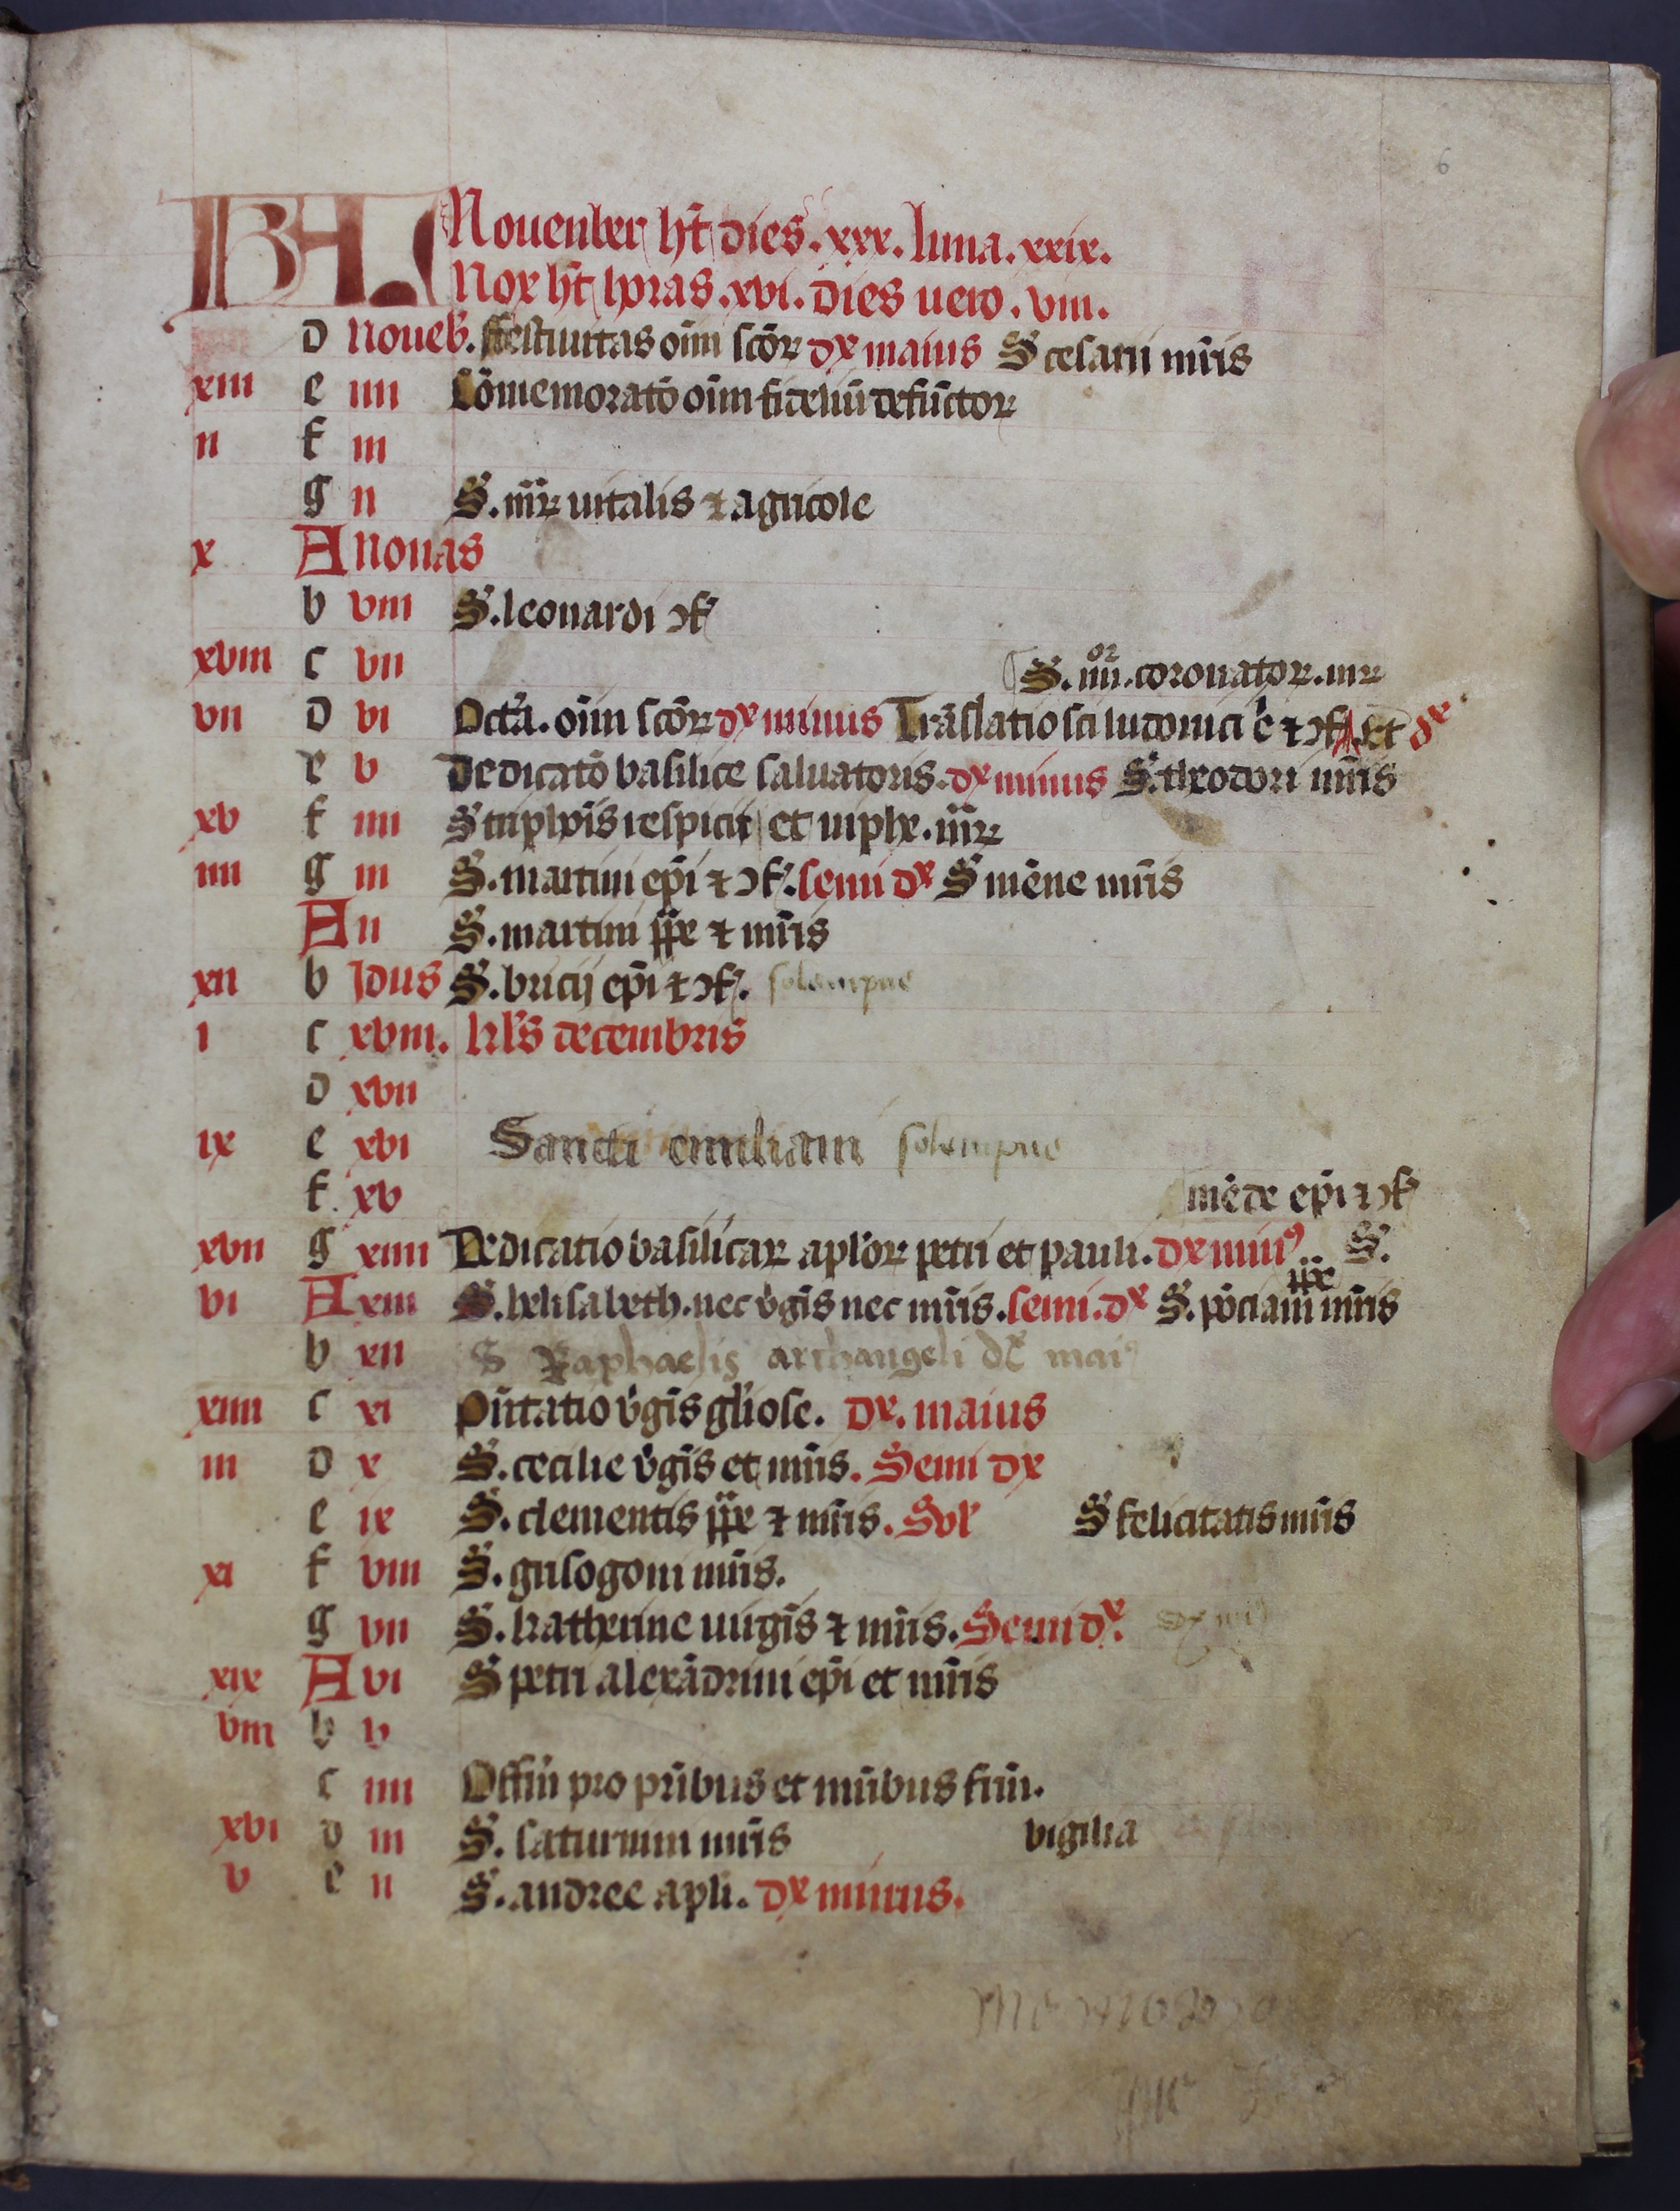 6
KL Nouenber h̄t dies. xxx. luna. xxix.
Nox h̄t horas. xvi. dies uero. viii.
d Noueb̄. ffestiuitas oīm scōꝝ dx maius S cesarii mr̄is
xiii e iiii Cōmemoratō oīm fideliū defūctoꝝ
ii f iii
g ii S. mr̄ꝝ uitalis ⁊ agricole
x A Nonas
b viii S. leonardi ↄf
xviii c vii S. iiii.oꝝ coronatoꝝ. mꝝ
vii d vi Octa̅. oīm scōꝝ dx minus Trāslatio sci ludouici e̅ ⁊ ↄf et dx
e v Dedicatō basilice saluatoris. dx minus S. theodori mr̄is
xv f iiii S triphōis respicii et niphe. mr̄ꝝ
iiii g iii S. martini ep̄i ⁊ ↄf. semi dx S mēne mr̄is
A ii S. martini p̄p̄e ⁊ mr̄is
xii b Idus S. bricij ep̄i ⁊ ↄf. solempne
i c xviii. kl̄s decembris
d xvii
ix e xvi Sancti emiliani solempne
f xv mēde ep̄i ⁊ ↄf
xvii g xiiii Dedicatio basilicaꝝ aploꝝ petri et pauli. dx miuꝰ.. S.
vi A xiii S. helisabeth. nec v̄gis nec mr̄is. semi. dx S. pōciani p̄p̄e mr̄is
b xii S Raphaelis archangeli dx maiꝰ
xiiii c xi Pn̄tatio v̄gis gl̄iose. dx. maius
iii d x S. cecilie v̄gis et mr̄is. Semi dx
e ix S. clementis p̄p̄e ⁊ mr̄is. Sol̄ S felicitatis mr̄is
xi f viii S. grisogoni mr̄is.
g vii S. katherine uirgis ⁊ mr̄is. Semi dx. dx miꝰ
xix A vi S petri alexādrini ep̄i et mr̄is
viii b v
c iiii Offm̄ pro pr̄ibus et mr̄ibus frm̄.
xvi d iii S. saturnini mr̄is vigilia
v e ii S. andree apli. dx minus.